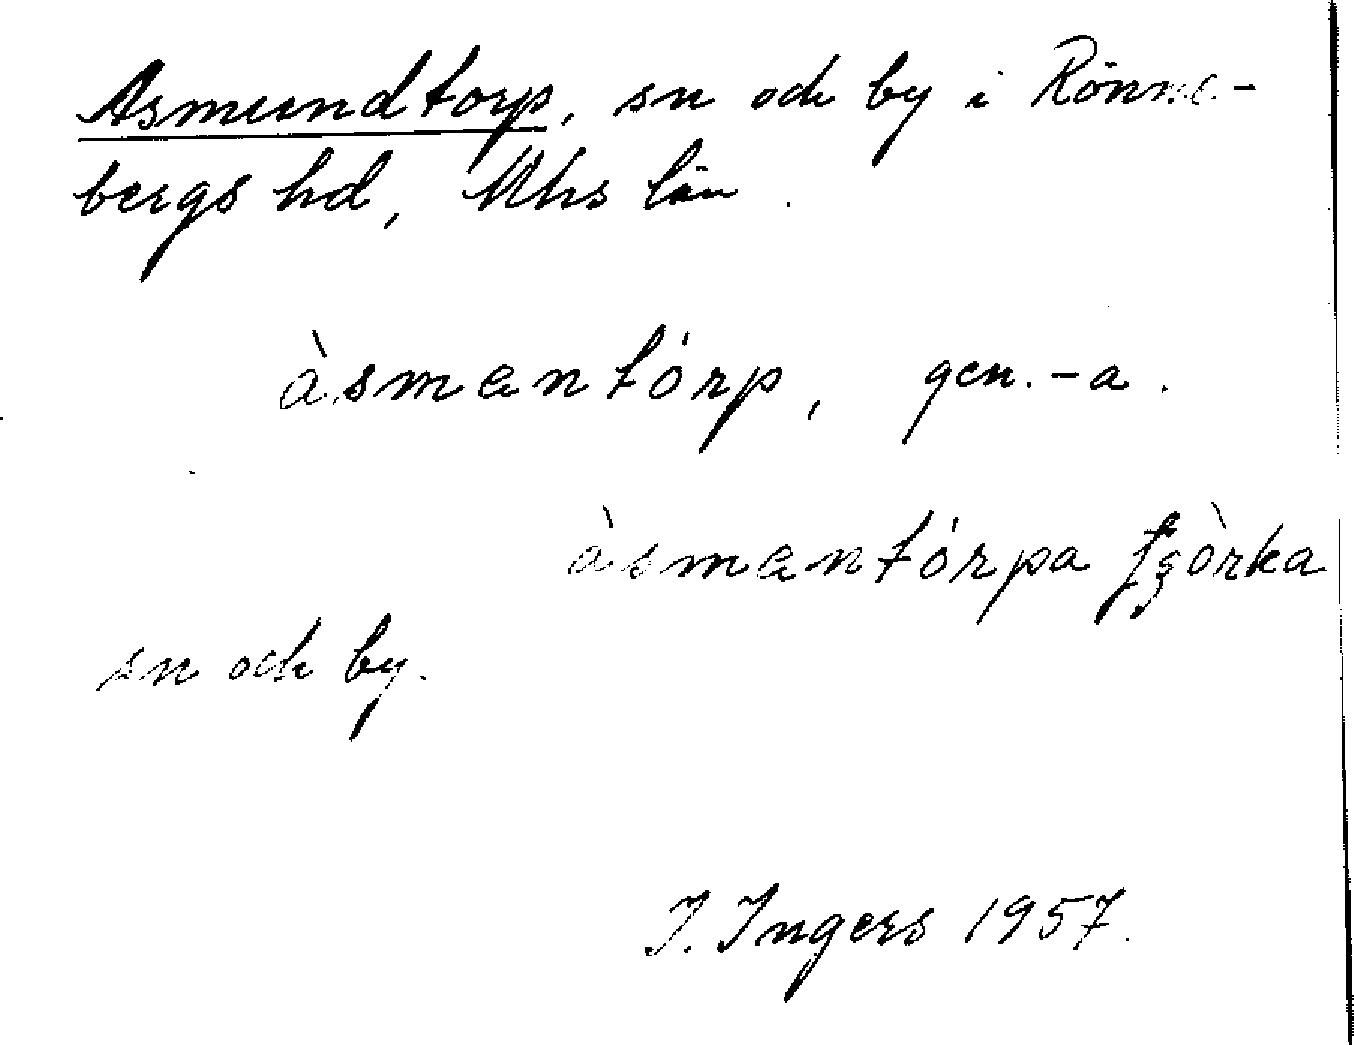 Asmundtorp, sn och by i Rönne-
bergs hd, Mhs län.
àsmantórp, gen. -a.
àsmantórpa
sn och by.
I. Ingers 1957.